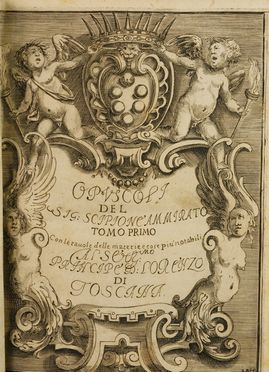 OPVSCOLI
DEL
SIG: SCIPIONE AMMIRATO
TOMO PRIMO
Con le tauole delle materie e cose più notabili
AL SER.MO
PRINCIPE D. LORENZO
DI
TOSCANA.